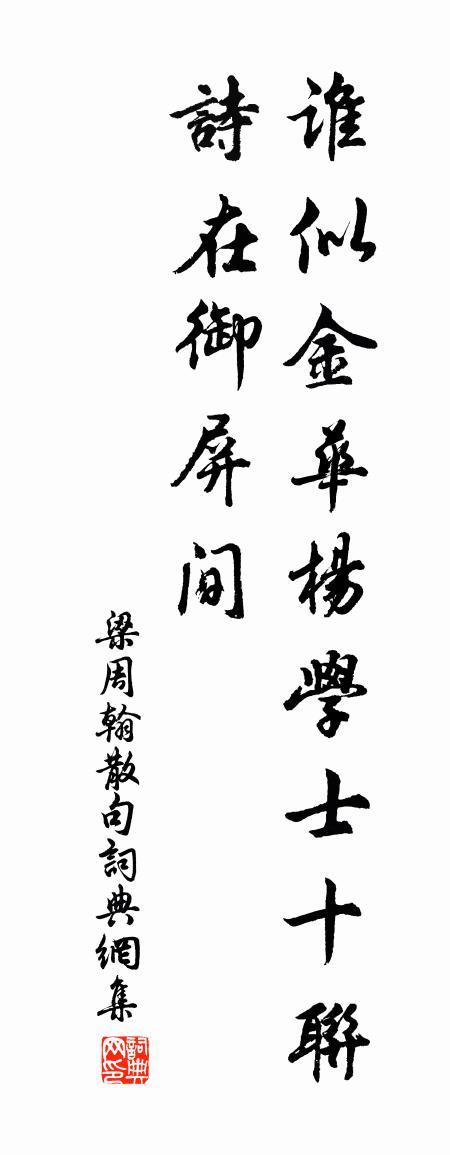 谁似金華楊學士十聯
詩在御屏间
梁周翰散句詞典網集
詞典网印